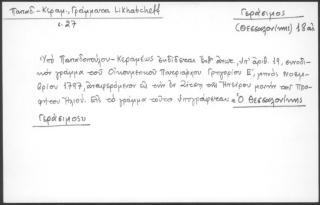 Παπαδ.-Κεραμ., Γράμματα Likhatcheff
σ. 27
Γεράσιμος
(Θεσσαλονίκης) 18 αἰ.
Ὑπὸ Παπαδοπούλου-Κεραμέως ἐκδίδεται ἔνθ' ἄνωτ., ὑπ' ἀριθ. 19, συνοδι-
κὸν γράμμα τοῦ Οἰκουμενικοῦ Πατριάρχου Γρηγορίου Ε', μηνὸς Νοεμ-
βρίου 1797, ἀναφερόμενον εἰς τὴν ἐν Ἠπείρου μονὴν τοῦ Προ-
φήτου Ἠλιού. Εἰς τὸ γράμμα τοῦτο ὑπογράφεται: «Ὁ Θεσσαλονίκης
Γεράσιμος»